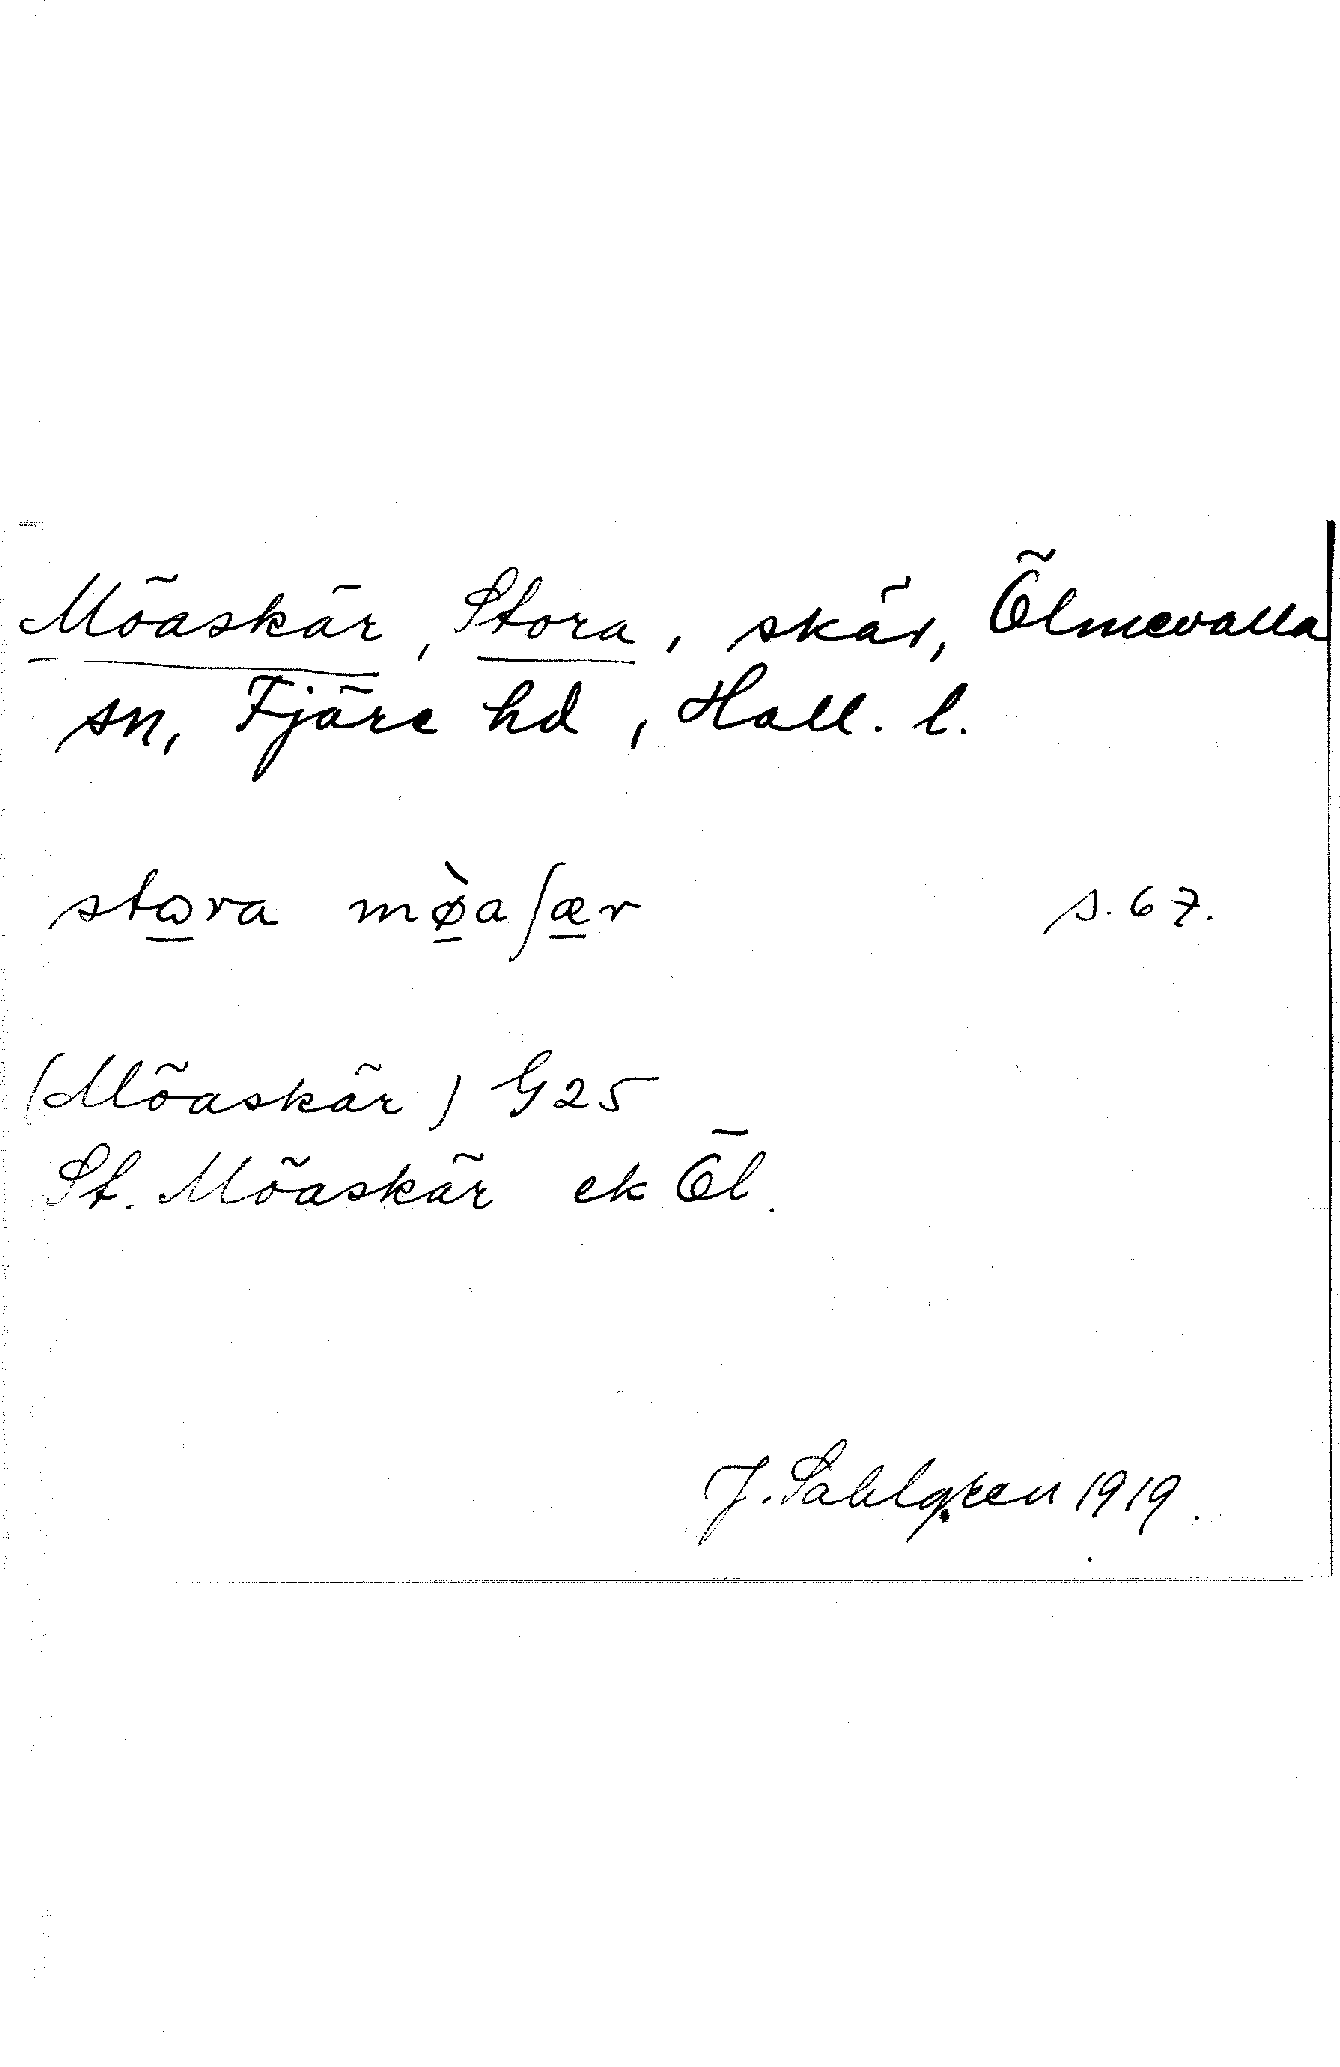 Möaskär, Stora, skär, Ölmevalla
sn, Fjäre hd, Hall. l.
stɷ̲ra mø̲̀aʃæ̲r s. 67.
(Möaskär) G25
St. Möaskär ek Öl.
J. Sahlgren 1919.